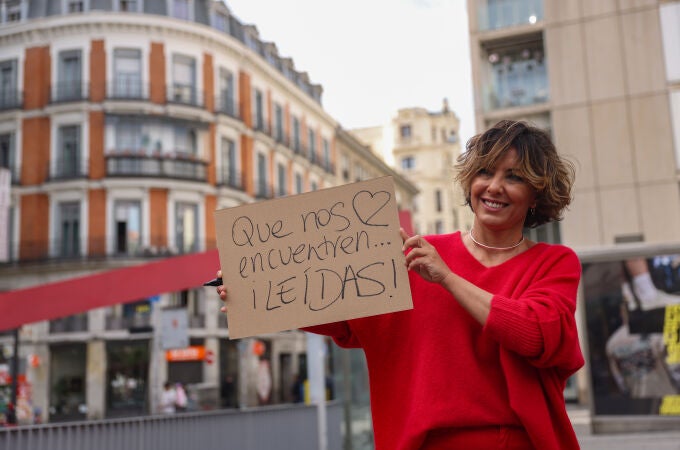 Que nos ♡
encuentren...
¡LEÍDAS!